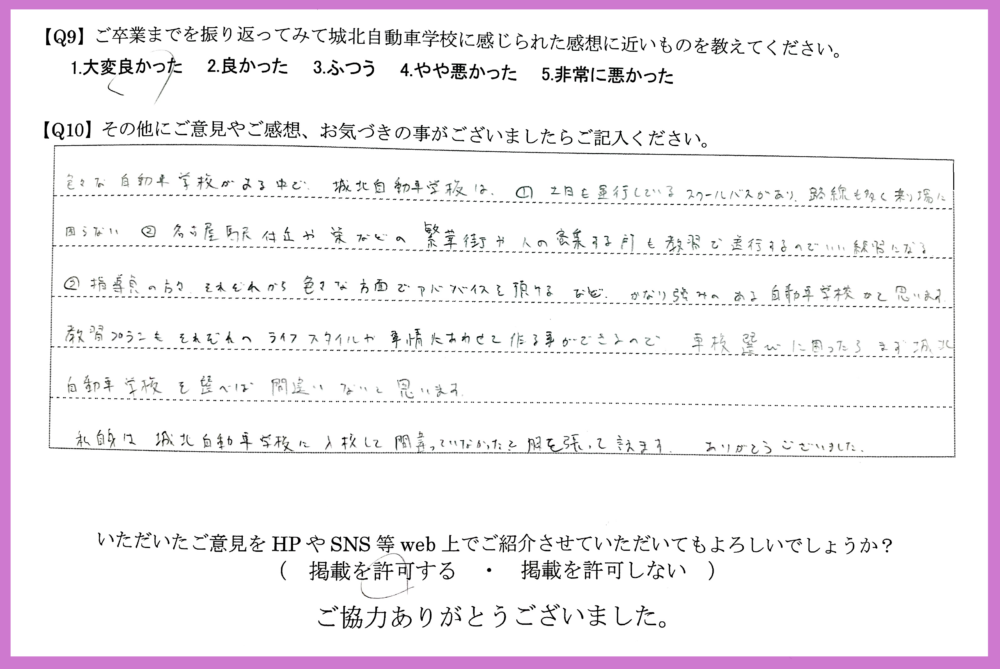 【Q9】ご卒業までを振り返ってみて城北自動車学校に感じられた感想に近いものを教えてください。
1.大変良かった 2.良かった 3.ふつう 4.やや悪かった 5.非常に悪かった
【Q10】その他にご意見やご感想、お気づきの事がございましたらご記入ください。
色々な自動車学校がある中で、城北自動車学校は、① 土日も運行しているスクールバスがあり、路線も多く来場に
困らない ② 名古屋駅付近や栄などの繁華街や人の密集する所も教習で走行するのでいい練習になる
② 指導員の方々、それぞれから色々な方面でアドバイスを頂けるなど、かなり強みのある自動車学校かと思います。
教習プランもそれぞれのライフスタイルや事情にあわせて作る事ができるので 車校選びに困ったらまず城北
自動車学校を選べば間違いないと思います。
私自身は城北自動車学校に入校して間違っていなかったと胸を張って言えます。ありがとうございました。
いただいたご意見をHPやSNS等web上でご紹介させていただいてもよろしいでしょうか？
( 掲載を許可する ・ 掲載を許可しない )
ご協力ありがとうございました。